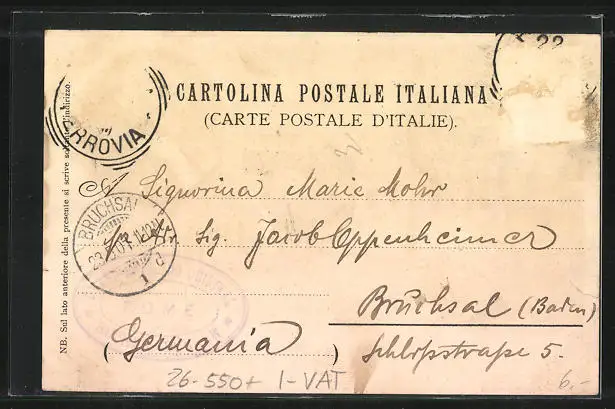 22
CARTOLINA POSTALE ITALIANA
(CARTE POSTALE D'ITALIE).
RROVIA
NB. Sul lato anteriore della presente si scrive soltanto l'indirizzo.
A Signorina Marie Mohr
Sig. Jacob Oppenheimer
BRUCHSAL
Bruchsal (Baden)
(Germania)
Schloßstraße 5.
26-550+ 1-VAT
6,-